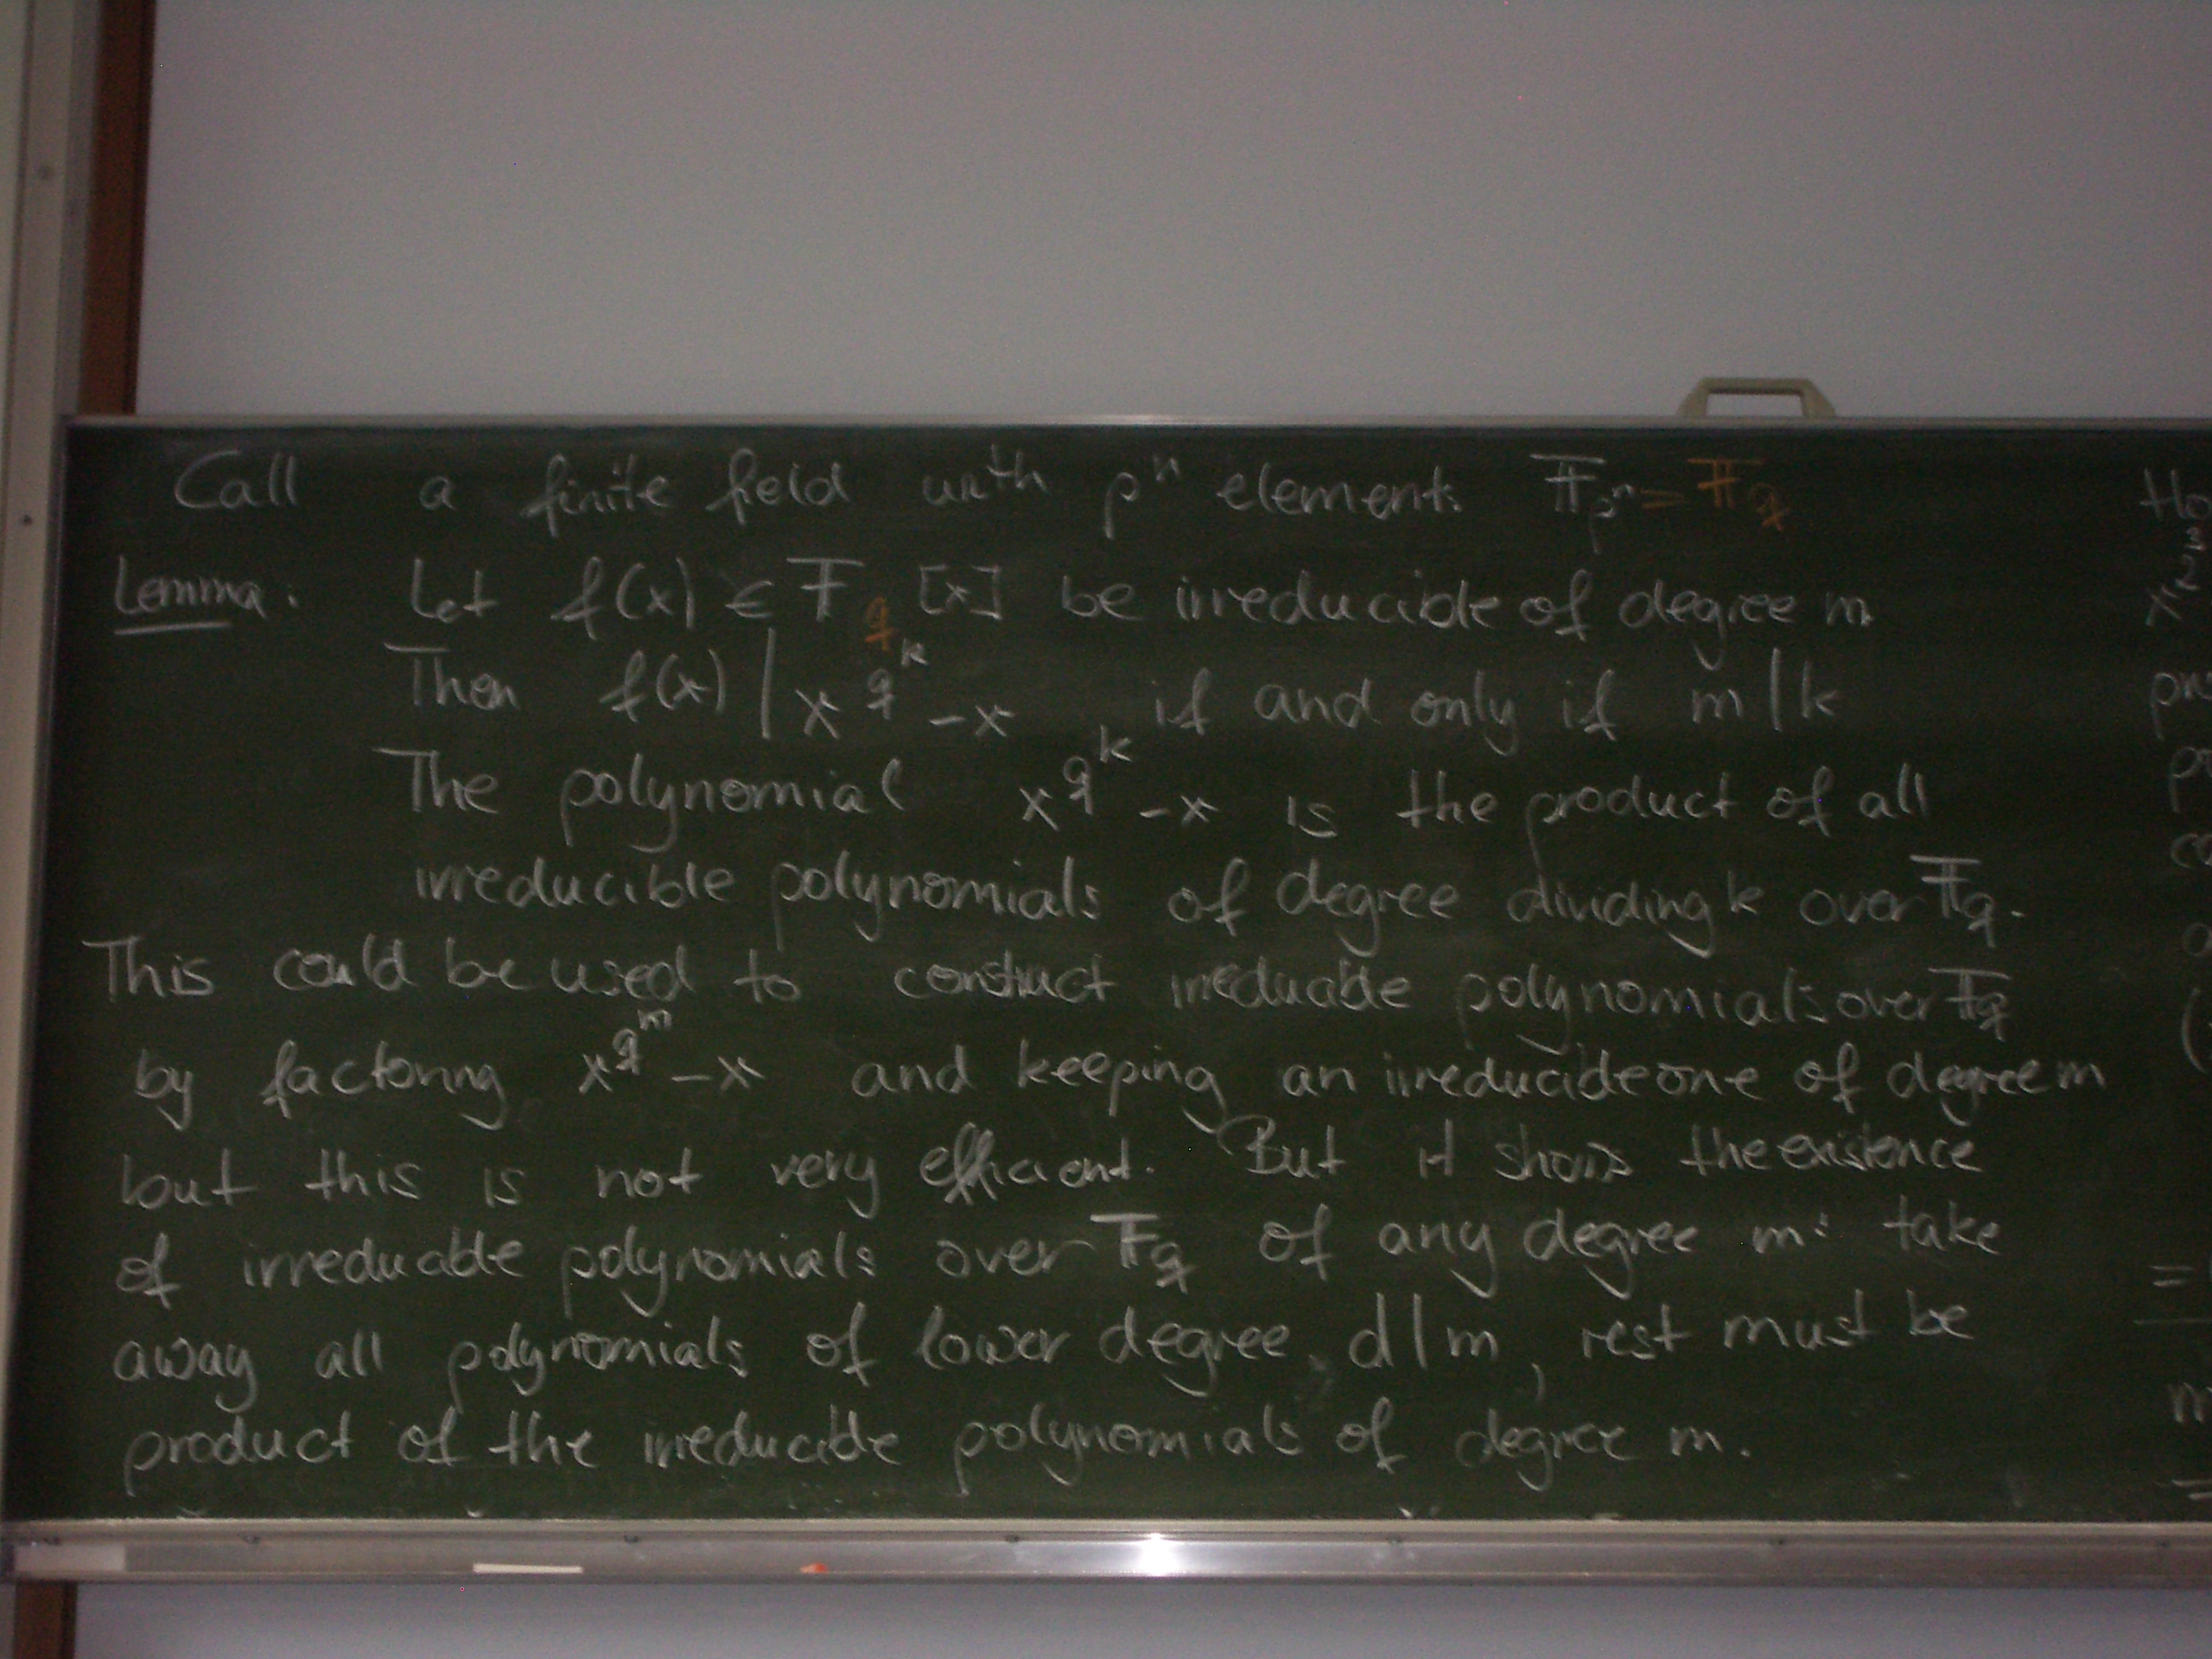 Call a finite field with pⁿ elements 𝔽_pⁿ = 𝔽_q
Lemma: Let f(x) ∈ 𝔽_q [x] be irreducible of degree m
Then f(x) | x^q^k - x if and only if m | k
The polynomial x^q^k - x is the product of all
irreducible polynomials of degree dividing k over 𝔽_q.
This could be used to construct irreducible polynomials over 𝔽_q
by factoring x^q^m - x and keeping an irreducible one of degree m
but this is not very efficient. But it shows the existence
of irreducible polynomials over 𝔽_q of any degree m: take
away all polynomials of lower degree, d | m, rest must be
product of the irreducible polynomials of degree m.